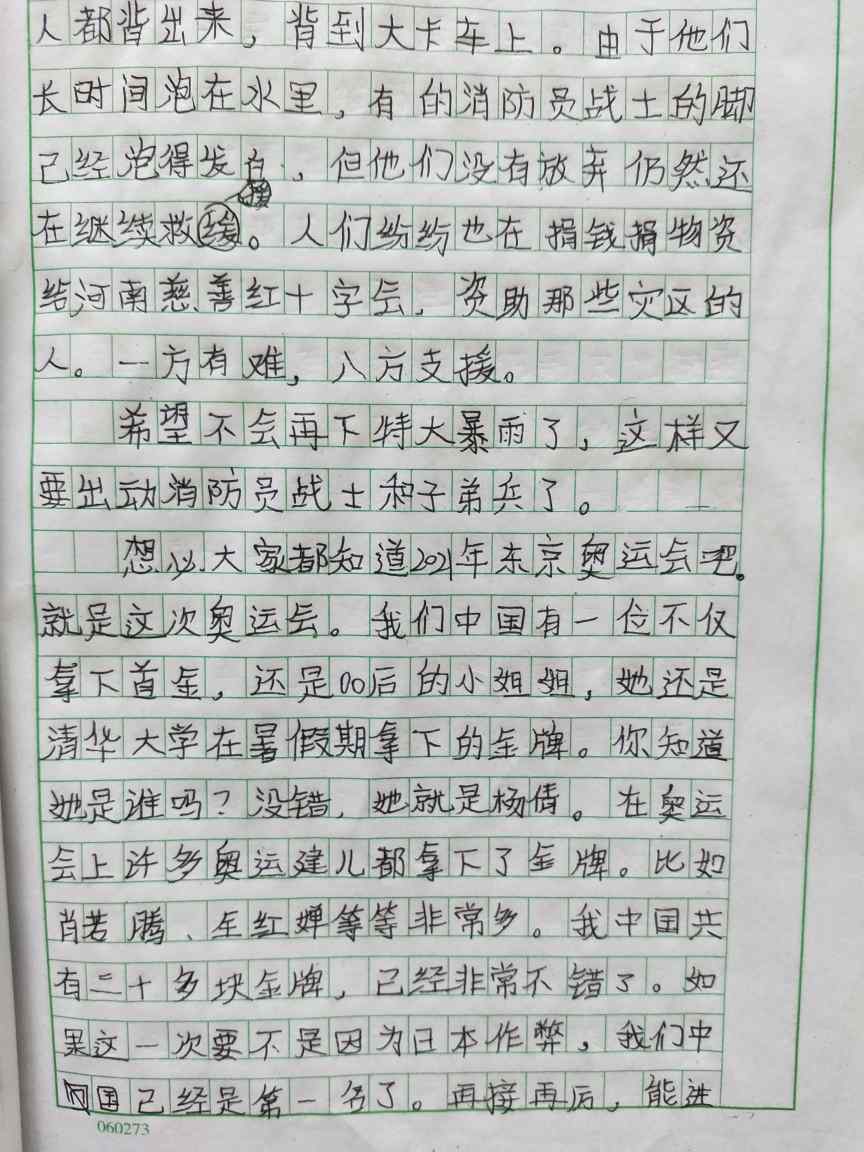 人都背出来，背到大卡车上。由于他们
长时间泡在水里，有的消防员战士的脚
已经泡得发白，但他们没有放弃仍然还
在继续救援。人们纷纷也在捐钱捐物资
给河南慈善红十字会，资助那些灾区的
人。一方有难，八方支援。
希望不会再下特大暴雨了，这样又
要出动消防员战士和子弟兵了。
想必大家都知道2021年东京奥运会吧。
就是这次奥运会。我们中国有一位不仅
拿下首金，还是00后的小姐姐，她还是
清华大学在暑假期拿下的金牌。你知道
她是谁吗？没错，她就是杨倩。在奥运
会上许多奥运建儿都拿下了金牌。比如
肖若腾、全红婵等等非常多。我中国共
有二十多块金牌，已经非常不错了。如
果这一次要不是因为日本作弊，我们中
国已经是第一名了。再接再厉，能进
060273